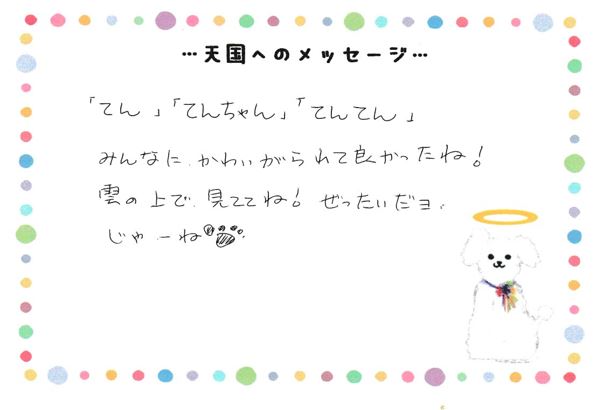 …天国へのメッセージ…
「てん」「てんちゃん」「てんてん」
みんなに、かわいがられて良かったね!
雲の上で、見ててね! ぜったいだヨ、
じゃーね